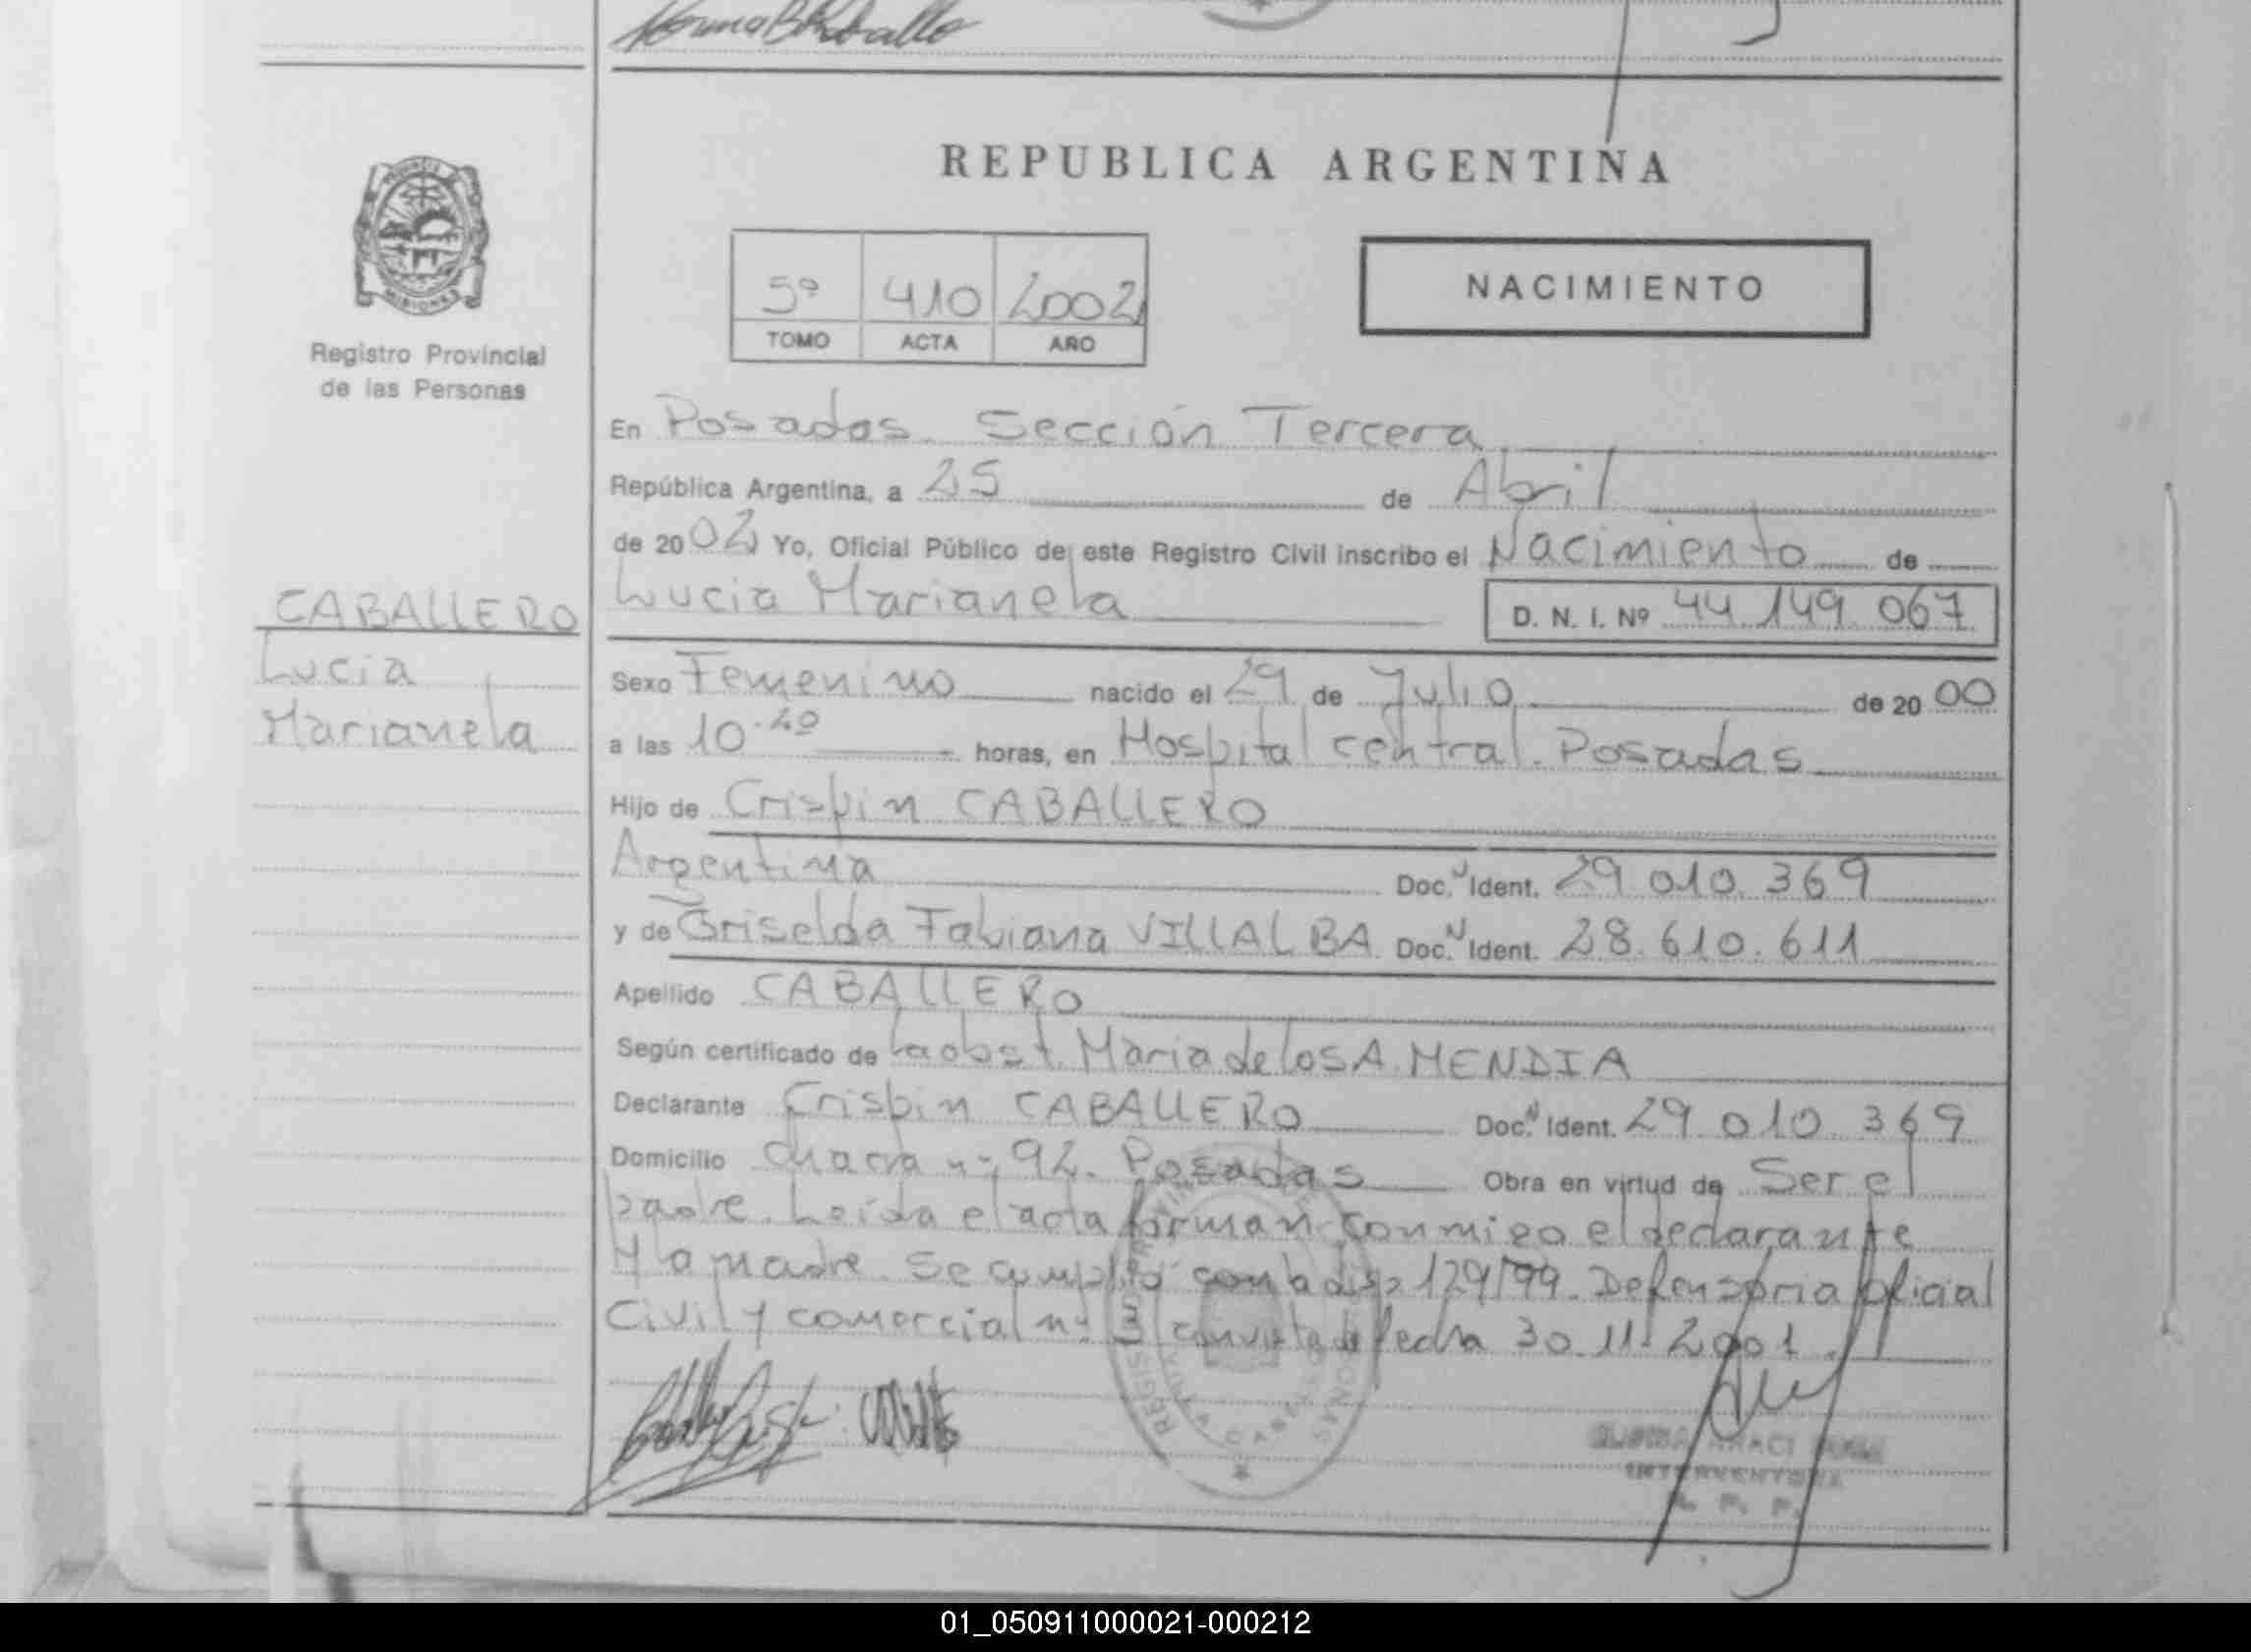 REPUBLICA ARGENTINA
5º 410 2002
TOMO ACTA AÑO
NACIMIENTO
PROVINCIA
MISIONES
Registro Provincial
de las Personas
CABALLERO
Lucia
Marianela
En Posadas. Sección Tercera
República Argentina, a 25 de Abril
de 2002 Yo, Oficial Público de este Registro Civil inscribo el Nacimiento de
Lucia Marianela D. N. I. Nº 44.149.067
Sexo Femenino nacido el 29 de Julio de 2000
a las 10.20 horas, en Hospital central. Posadas
Hijo de Crispin CABALLERO
Argentina Doc. Ident. 29.010.369
y de Griselda Fabiana VILLALBA Doc. Ident. 28.610.611
Apellido CABALLERO
Según certificado de la obst. Maria de los A. MENDIA
Declarante Crispin CABALLERO Doc. Ident. 29.010.369
Domicilio chacra nº 92. Posadas Obra en virtud de Ser el
padre. Leida el acta firman conmigo el declarante
y la madre. Se cumplió con la disp 129/99. Defensoria oficial
Civil y comercial nº 3 con vista de fecha 30.11.2001.
INTERVENTORA
R. P. P.
01_050911000021-000212